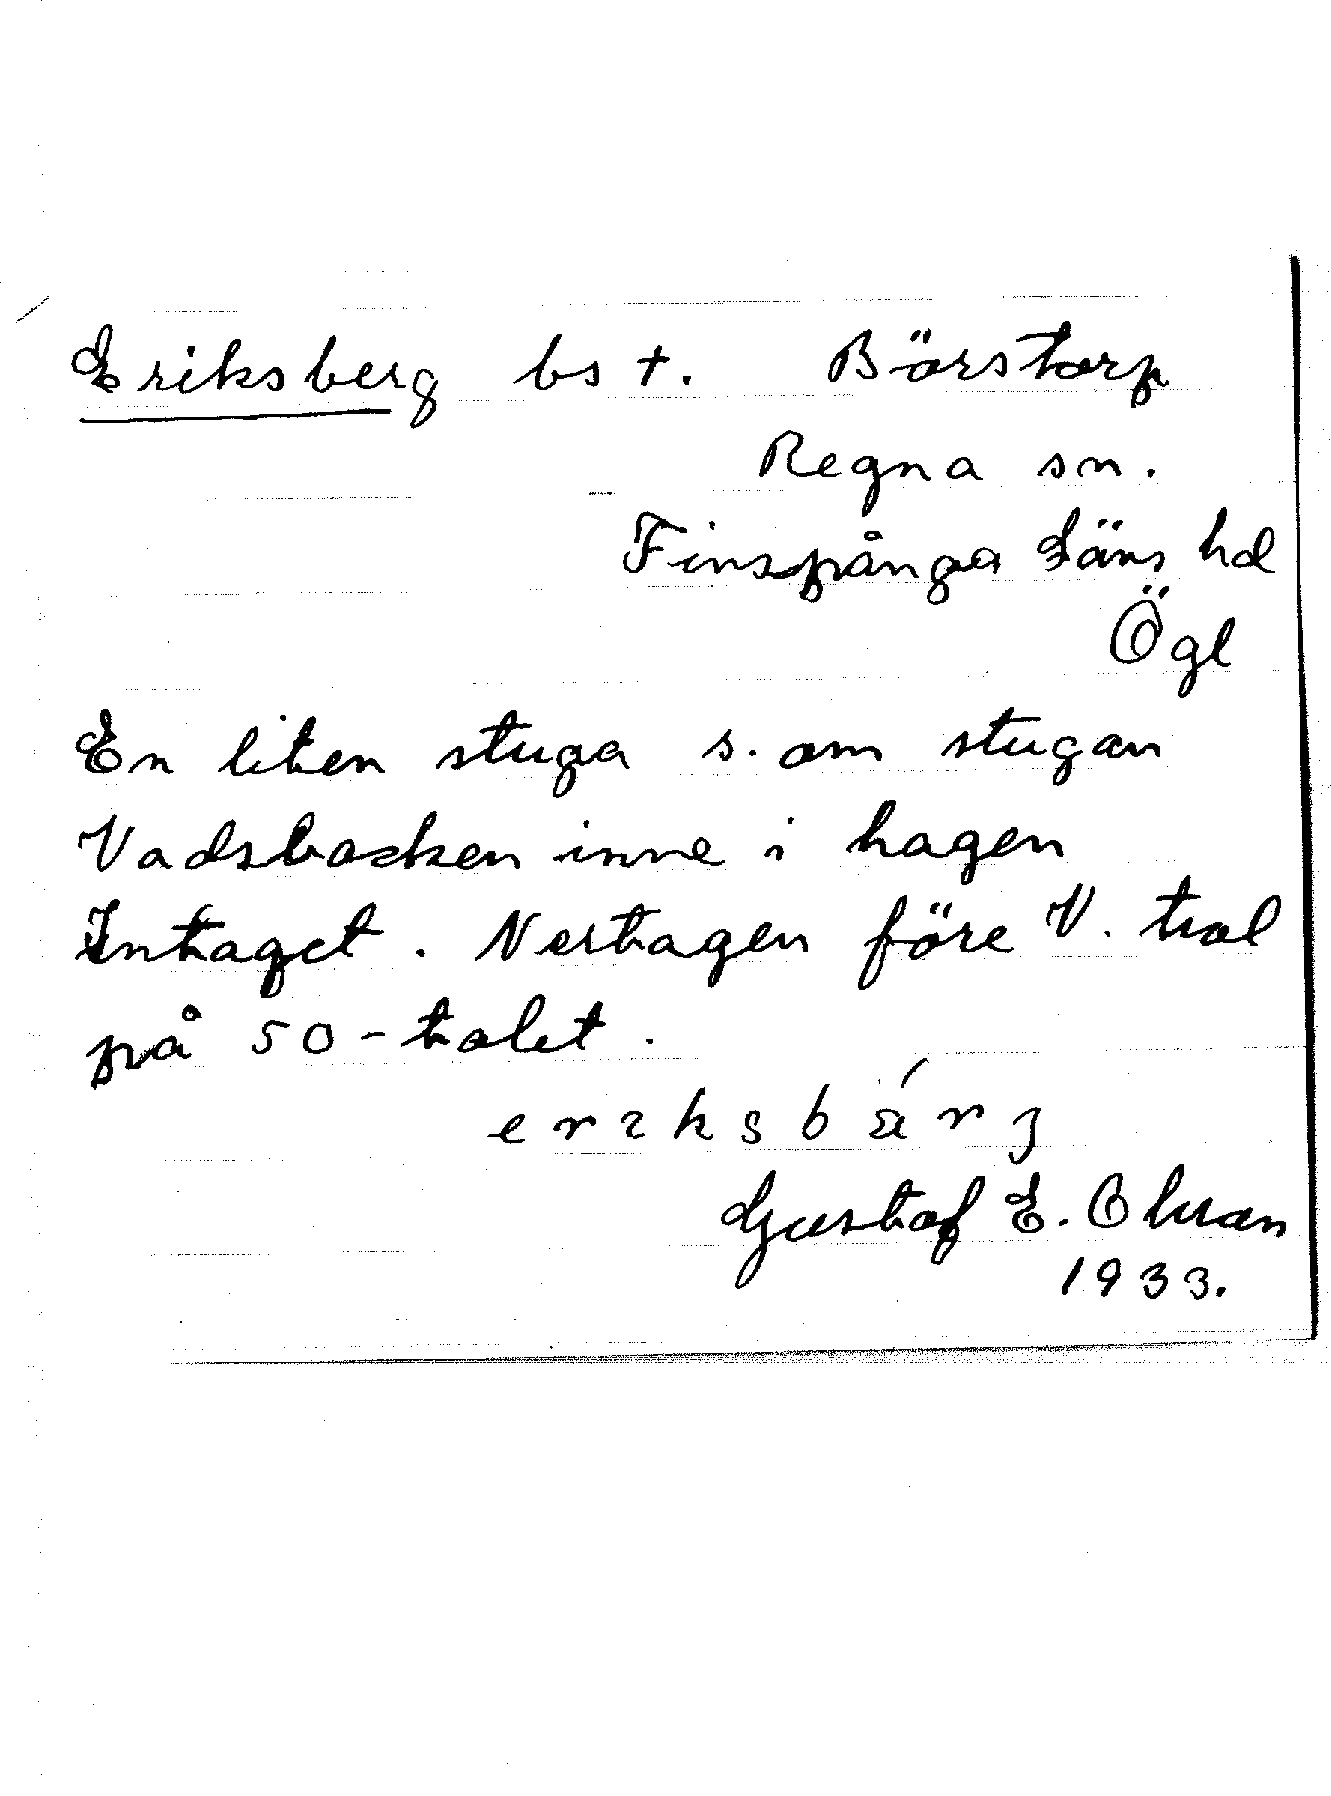 Eriksberg bs t. Börstorp
Regna sn.
Finspånga Läns hd
Ögl
En liten stuga s. om stugan
Vadsbacken inne i hagen
Intaget. Nertagen före V. tral
på 50-talet.
Gustaf E. Olsson
1933.